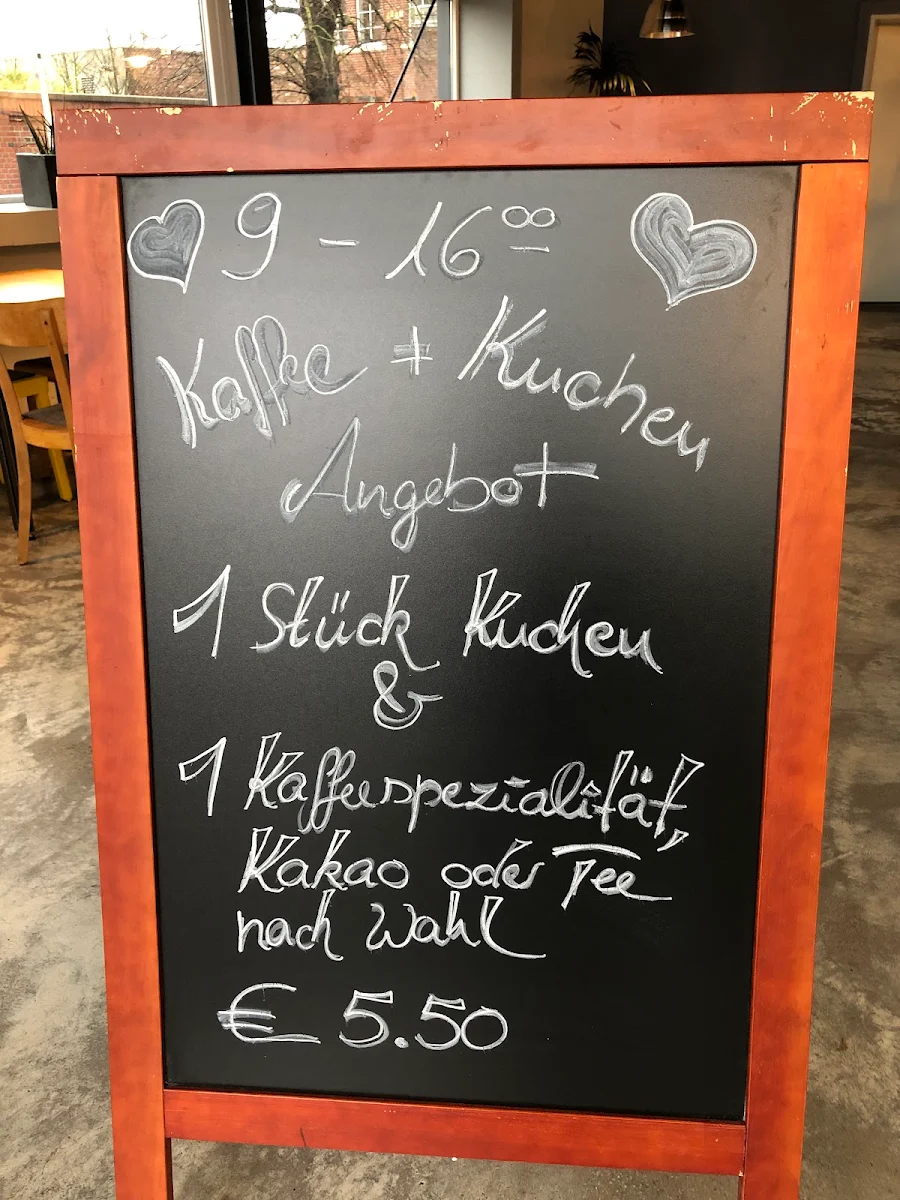 9 - 16⁰⁰
Kaffee + Kuchen
Angebot
1 Stück Kuchen
&
1 Kaffeespezialität,
Kakao oder Tee
nach Wahl
€ 5.50